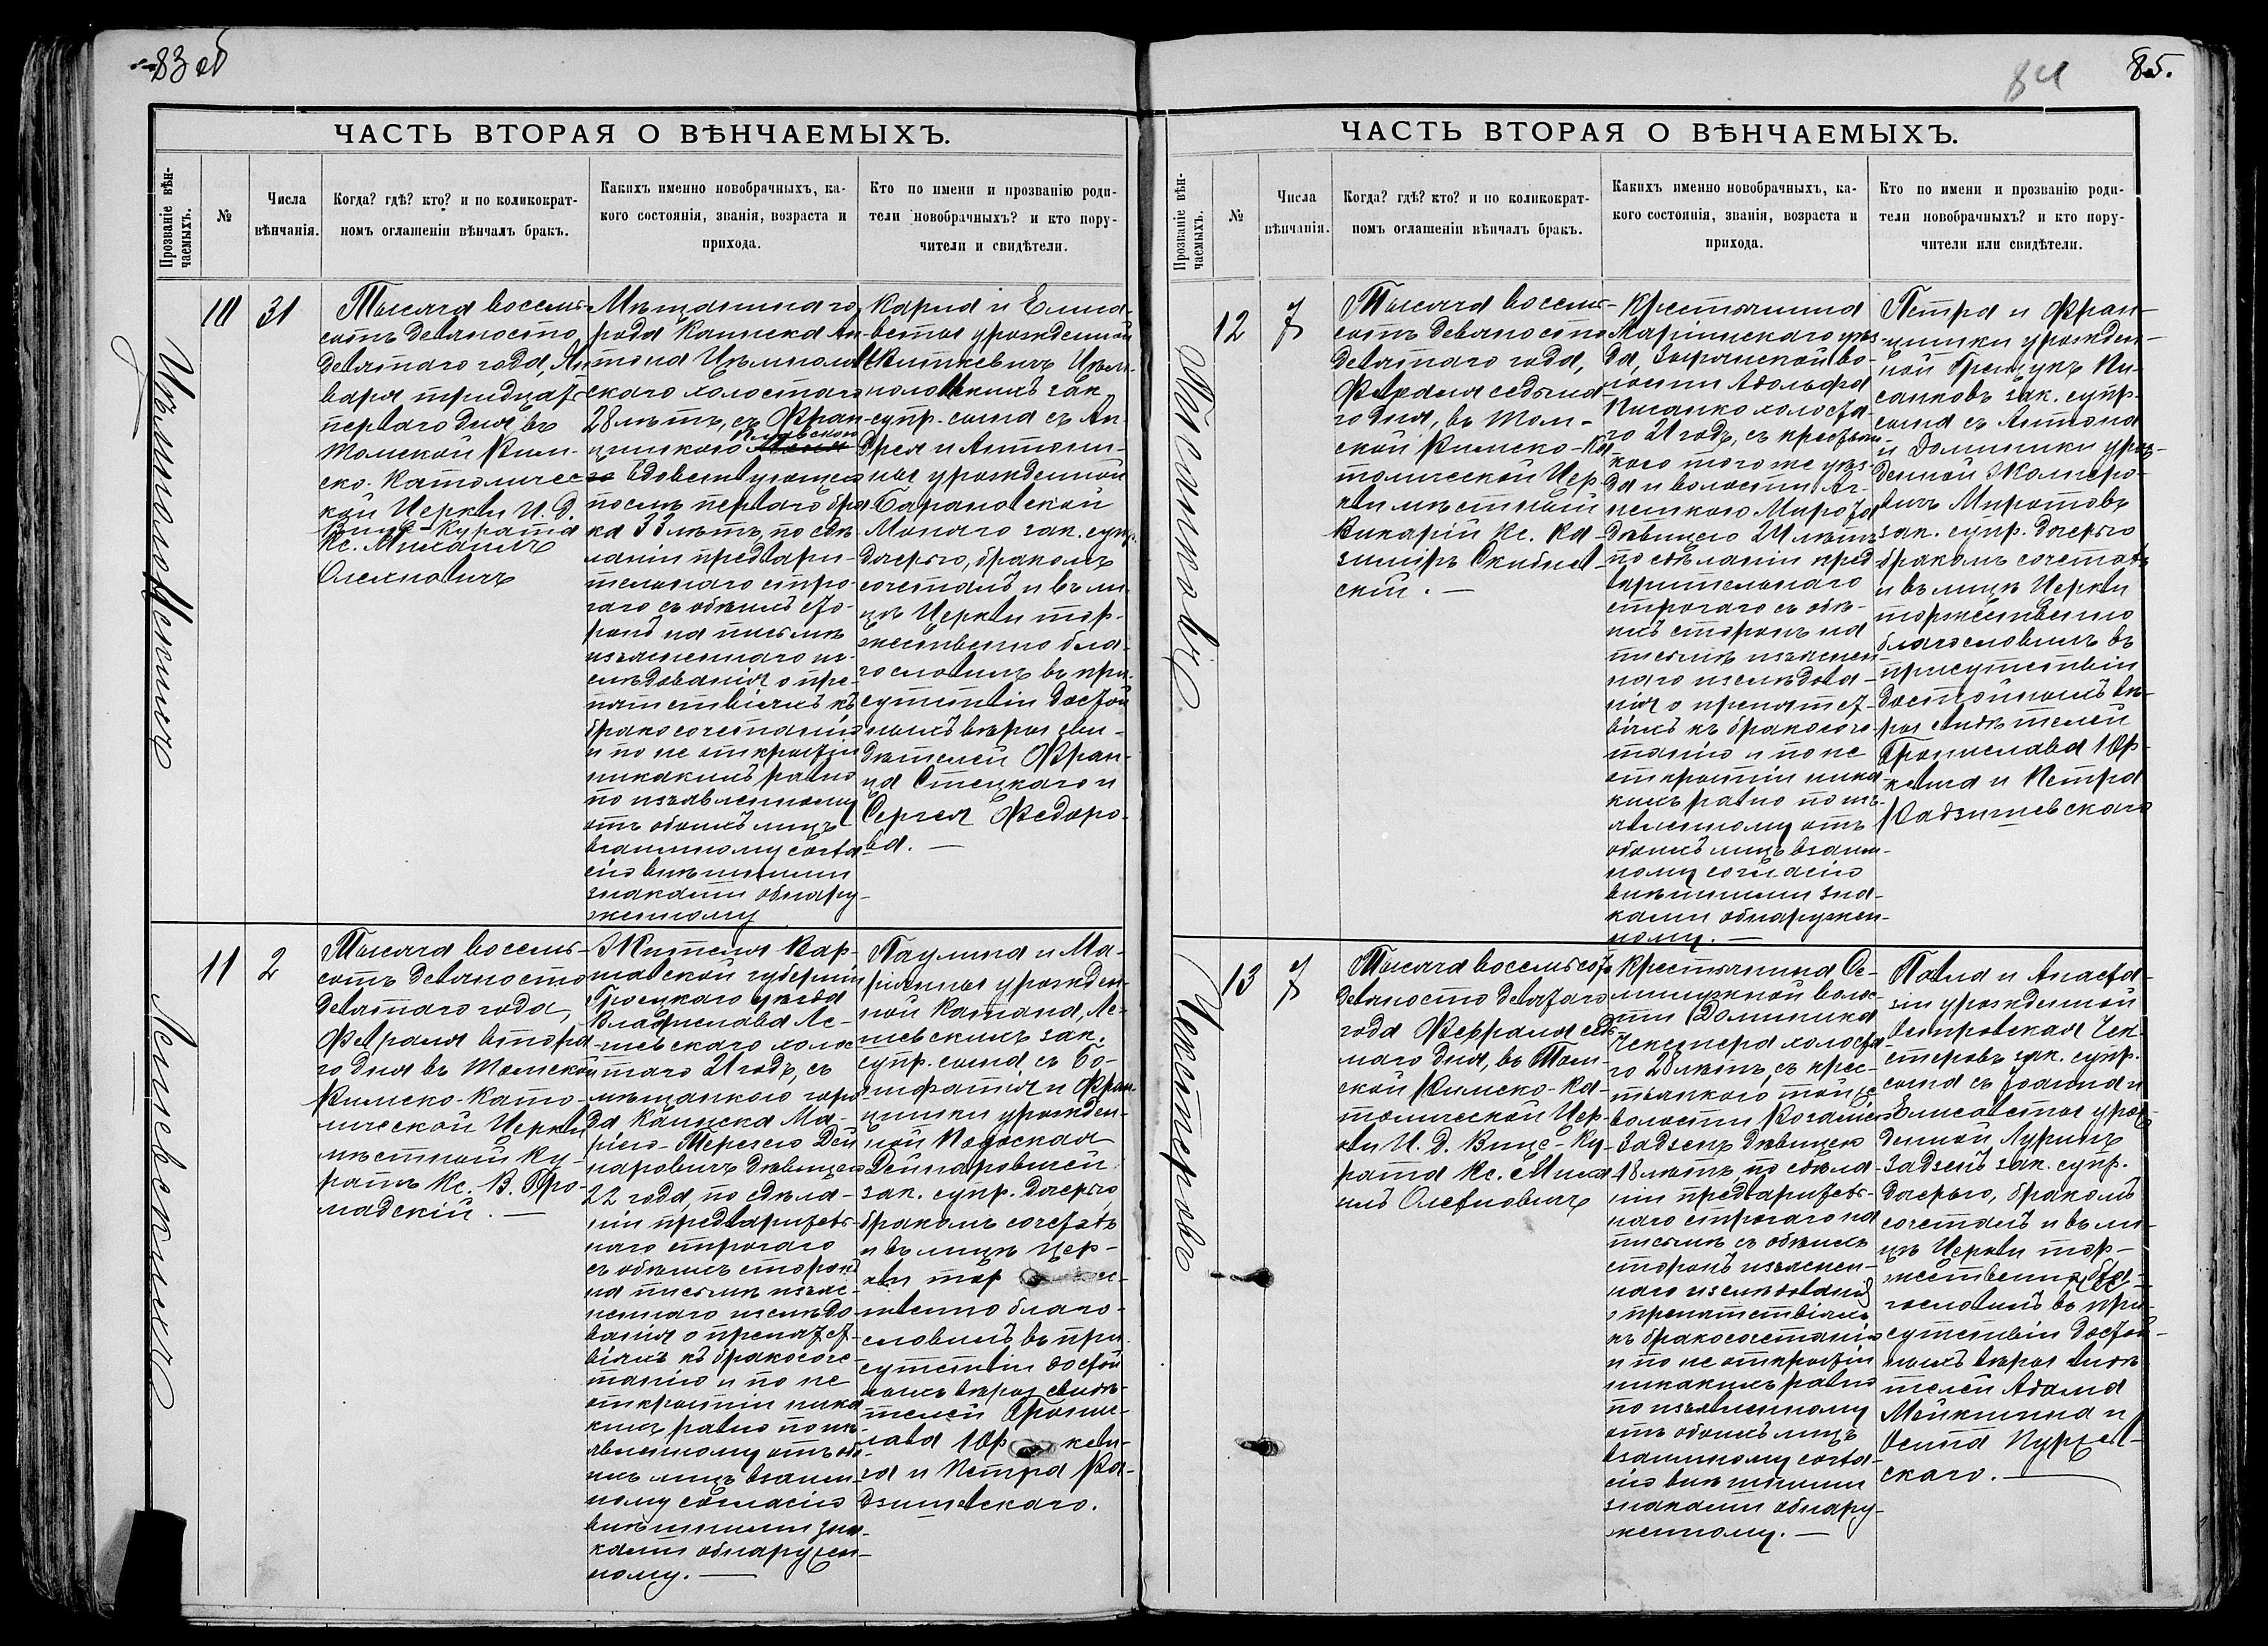 83 об
ЧАСТЬ ВТОРАЯ О ВѢНЧАЕМЫХЪ.
Прозваніе вѣн-
чаемыхъ.
№
Числа
вѣнчанія.
Когда? гдѣ? кто? и по коликократ-
номъ оглашеніи вѣнчалъ бракъ.
Какихъ именно новобрачныхъ, ка-
кого состоянія, званія, возраста и
прихода.
Кто по имени и прозванію роди-
тели новобрачныхъ? и кто пору-
чители и свидѣтели.
10
31
Тысяча восемь-
сотъ девяносто
девятаго года, Ян
варя тридцать
перваго дня въ
Томской Рим-
ско-Католичес-
кой Церкви И. Д.
Вице-Курата
Кс. Михаилъ
Олехновичъ
Мѣщанина го
рода Каинска Ан
тона
скаго холостаго
28 лѣтъ, съ Фран
цишкою
вдовствующею
послѣ перваго бра
ка 33 лѣтъ, по сдѣ
ланіи предвари-
тельнаго стро-
гаго съ обѣихъ сто-
ронъ на письмѣ
изъясненнаго из-
слѣдованія о пре-
пятствіяхъ къ
бракосочетанію
и по не открытіи
никакихъ равно
по изъявленному
отъ обоихъ лицъ
взаимному согла
сію внѣшними
знаками обнару-
женному
Карла и Елиса
веты урожденной
зак.
супр. сына съ Ан-
дрея и Антони-
ны урожденной
Барановской
зак. супр.
дочерью, бракомъ
сочеталъ и въ ли
цѣ Церкви тор-
жественно бла-
гословилъ въ при
сутствіи достой
ныхъ вѣры сви-
дѣтелей Фран-
ца Стецкаго и
Сергея Федоро-
ва. —
11
2
Лесневскихъ
Тысяча восемь-
сотъ девяносто
девятаго года,
Февраля второ
го дня въ Томской
Римско-Като-
лической Церкви
мѣстный Ку-
ратъ Кс. В. Гро-
мадскій. —
Жителя Вар-
шавской губерніи
Гроецкаго уѣзда
Владислава Ле-
скаго холос
таго 21 годъ, съ
мѣщанкою горо
да Каинска Ма-
ріею-Терезею Дей
наровичъ дѣвицею
22 года, по сдѣла-
ніи предваритель-
наго строгаго
съ обѣихъ сторонъ
на письмѣ изъяс-
неннаго изслѣдо-
ванія о препятст-
віяхъ къ бракосоче-
танію и по не
открытіи ника
кихъ равно по изъ-
явленному отъ обо-
ихъ лицъ взаим-
ному согласію
внѣшними зна-
ками обнаружен-
ному. —
Паулина и Ма-
ріанны урожден-
ной Ле-
скихъ зак.
супр. сына, съ Бо-
нифатія и Фран
цишки урожден-
ной
Дейнаровичей
зак. супр. дочерью,
бракомъ сочеталъ
и въ лицѣ Цер-
кви тор
ственно благо-
словилъ въ при
сутствіи достой
ныхъ вѣры свидѣ-
телей Бронис-
лава Юр
и Петра Ра-
дзишевскаго.
84
85.
ЧАСТЬ ВТОРАЯ О ВѢНЧАЕМЫХЪ.
Прозваніе вѣн-
чаемыхъ.
№
Числа
вѣнчанія.
Когда? гдѣ? кто? и по коликократ-
номъ оглашеніи вѣнчалъ бракъ.
Какихъ именно новобрачныхъ, ка-
кого состоянія, званія, возраста и
прихода.
Кто по имени и прозванію роди-
тели новобрачныхъ? и кто пору-
чители или свидѣтели.
12
7
Писанковъ
Тысяча восемь-
сотъ девяносто
девятаго года,
Февраля седьма-
го дня, въ Том-
ской Римско-Ка
толической Цер-
кви мѣстный
Викарій Кс. Ка-
зиміръ Скибнев-
скій. —
Крестьянина
Маріинскаго уѣз-
да, Зырянской во-
лости Адольфа
Писанко холоста-
го 21 годъ, съ крестьян-
кою того же уѣз-
да и волости Аг-
нешкою
дѣвицею 24 лѣтъ
по сдѣланіи пред
варительнаго
строгаго съ обѣ-
ихъ сторонъ на
письмѣ изъяснен
наго изслѣдова-
нія о препятст-
віяхъ къ бракосоче-
танію и по не
открытіи ника
кихъ равно по изъ-
явленному отъ
обоихъ лицъ взаим-
ному согласію
внѣшними зна-
ками обнаружен-
ному. —
Петра и Фран-
цишки урожден-
ной Грещукъ Пи-
санковъ зак. супр.
сына съ Антона
и Доминики урож-
денной
зак. супр. дочерью
бракомъ сочеталъ
и въ лицѣ Церкви
торжественно
благословилъ въ
присутствіи
достойныхъ вѣ-
ры свидѣтелей
Бронислава Юр-
и Петра
Радзишевскаго
13
7
Чекстеровъ
Тысяча восемьсотъ
девяносто девятаго
года Февраля седь-
маго дня, въ Том-
ской Римско-Ка-
толической Цер-
кви И. Д. Вице-Ку-
рата Кс. Миха
илъ Олехновичъ
Крестьянина Се-
милужной воло-
сти Доминика
Чекстера холоста
го 28 лѣтъ, съ крес-
тьянкою той же
волости
Задзенъ дѣвицею
18 лѣтъ, по сдѣла-
ніи предваритель-
наго строгаго на
письмѣ съ обѣихъ
сторонъ изъяснен-
наго изслѣдованія
о препятствіяхъ
къ бракосочетанію
и по не открытіи
никакихъ равно
по изъявленному
отъ обоихъ лицъ
взаимному согла-
сію внѣшними
знаками обнару-
женному. —
Павла и Анаста-
зіи урожденной
Чек-
стеровъ зак. супр.
сына съ и
Елисаветы урож-
денной
Задзенъ зак. супр.
дочерью, бракомъ
сочеталъ и въ ли-
цѣ Церкви тор-
жественно бла-
гословилъ въ при-
сутствіи достой-
ныхъ вѣры свидѣ
телей Адама
и
Осипа
скаго. —